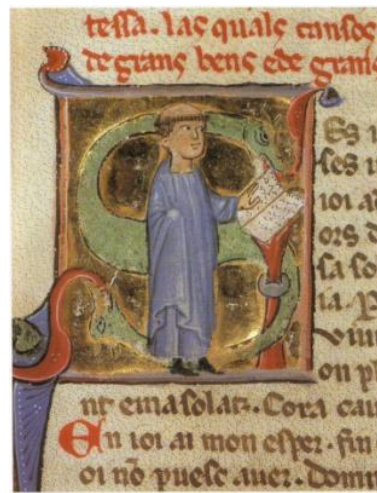 tessa. las quals cansos
de grans bens ede grans
ses
ioi
ors
sa so
ia.
on pl
nt em a solatz. Cora
En ioi ai mon esper. fin
oi nō puesc auer. Domn